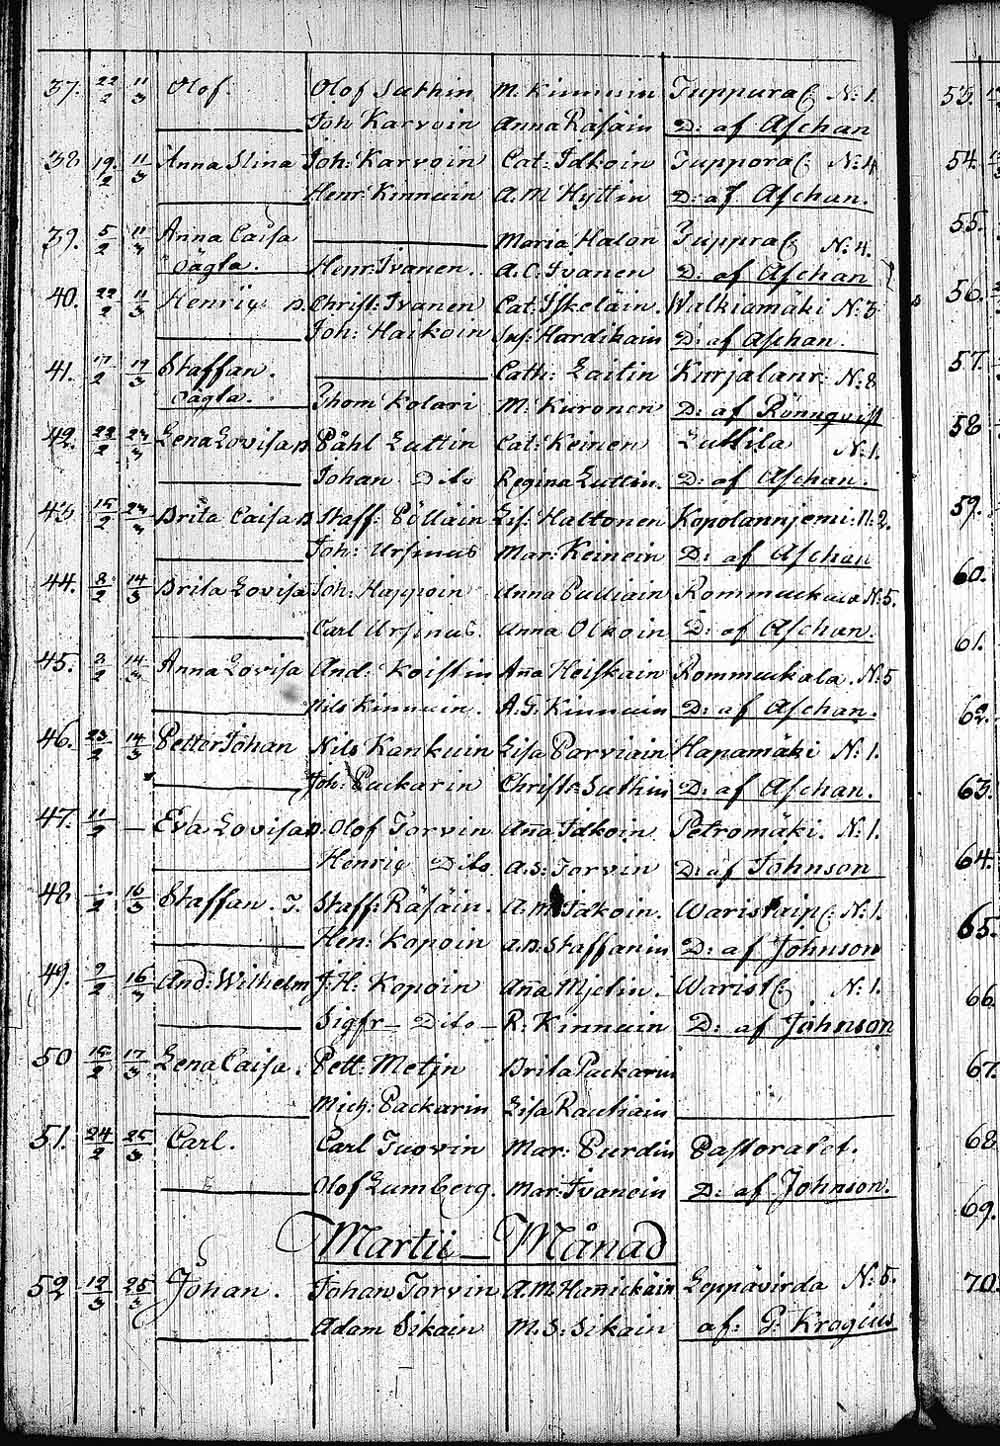 37. 22/2 11/3 Olof. Olof Suthin M. Kinnuin Tuppura N: 1.
Joh Karvoin Anna Räsäin D: af Aschan
38 19/2 11/3 Anna Stina Joh: Karvoin Cat: Idkoin Tuppora N: 4
Henr: Kinnuin A. M Hyttin D: af Aschan.
39. 5/2 11/3 Anna Caisa Maria Halon Tuppra N: 4.
oägta. Henr: Ivanen. A. C. Ivanen D: af Aschan
40. 22/2 11/3 Henriq Christ: Ivanen Cat: Iskeläin. Walkiamäki N: 3
Joh: Haikoin Hardikain D: af Aschan.
41. 17/2 19/3 Staffan. Cath: Laitin Kurjalanr: N: 8
oägta. Thom Kolari M: Kuronen D: af Rönnqvist
42. 22/2 23/3 Lena Lovisa D. Påhl Luttin Cat: Keinen Luttila N: 1.
Johan Dito Regina Luttin. D: af Aschan.
43 15/2 23/3 Brita Caisa D Staff: Pöllain Lis: Haltonen Kopolannjemi: N: 2.
Joh: Ursinus Mar: Keinein D: af Aschan
44. 8/2 14/3 Brita Lovisa Joh: Happoin Anna Pulliain N: 5.
Carl Ursinus. Anna Olkoin D: af Aschan.
45. 14/3 Anna Lovisa And: Koistin Aña Heiskain Rommukala. N: 5
Nils Kinnuin. A. G. Kinnuin D: af Aschan.
46. 23/2 14/3 Petter Johan Nils Kankuin Lisa Parviain Hapamäki N: 1.
Joh: Packarin Christ: Suthin D: af Aschan.
47. 11/2 — Eva Lovisa D. Olof Torvin Aña Idkoin Petromäki. N: 1.
Henriq Dito. A. S: Torvin D: af Johnson
48. 16/3 Staffan. T. Staff: Räsäin. A. M Idkoin. N: 1.
Hen: Kopoin Staffanin D: af Johnson
49. 9/2 16/3 And: Wilhelm J. H: Kopoin Aña Mjelin. N: 1.
Sigfr — Dito — R: Kinnuin D: af Johnson
50 15/2 17/3 Lena Caisa. Pett: Metjn Brita Packarin
Mich: Packarin Lisa Rautiain
51. 24/2 25/3 Carl. Carl Tuovin Mar: Purdin Pastoratet.
Olof Lumberg. Mar: Ivanein D: af Johnson.
Martii — Månad
52 12/3 25/3 Johan. Johan Torvin A. M Hanickäin Leppävirda N: 5.
Adam Sikain M. S: Sikain af: G: Krogius
53.
54.
55.
56.
57.
58
59.
60.
61.
62.
63.
64.
65.
66
67.
68
69.
70.